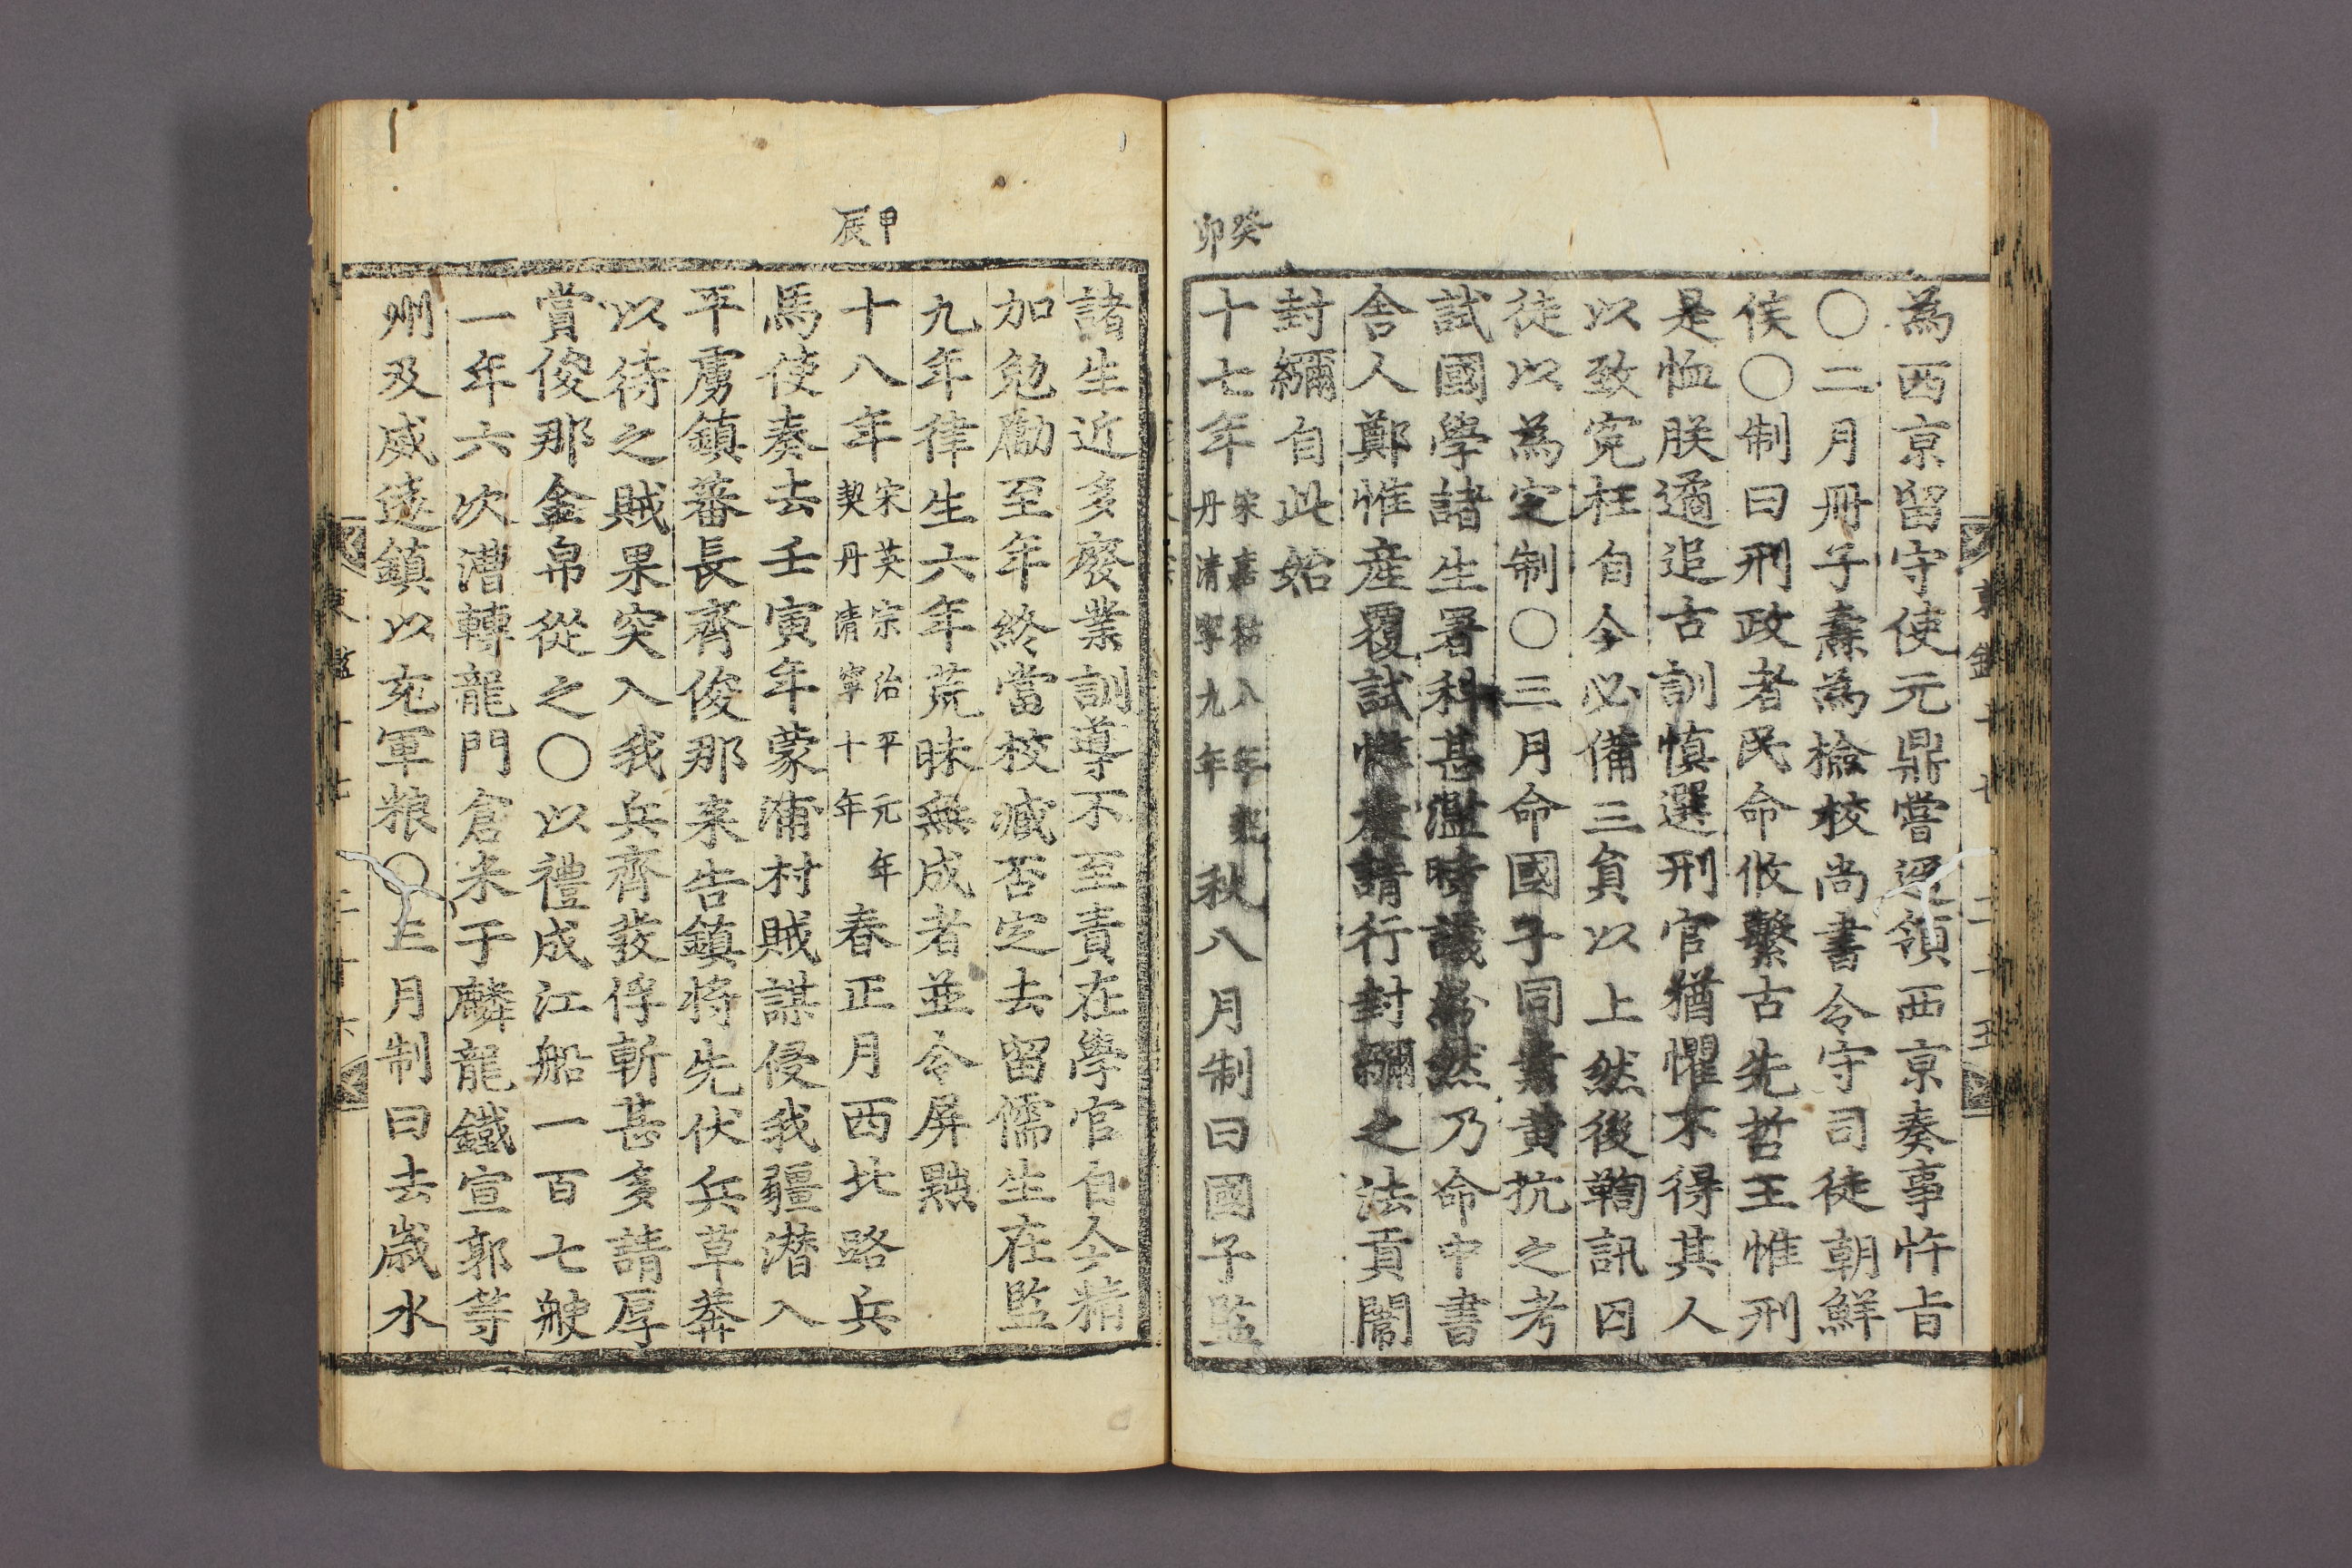 為西京留守使元鼎嘗還領西京奏事忤旨
〇二月冊子燾為檢校尚書令守司徒朝鮮
侯〇制曰刑政者民命攸繫古先哲王惟刑
是恤朕遹追古訓慎選刑官猶懼不得其人
以致寃枉自今必備三貟以上然後鞫訊囚
徒以為定制〇三月命國子同業黃抗之考
試國學諸生署科甚濫時議然乃命中書
舍人鄭惟産覆試惟産請行封彌之法貢闈
封彌自此始
癸卯
十七年宋嘉祐八年契丹清寧九年秋八月制曰國子監
諸生近多廢業訓導不至責在學官自今精
加勉勵至年終當校臧否定去留儒生在監
九年律生六年荒昧無成者並令屏黜
甲辰
十八年宋英宗治平元年契丹清寧十年春正月西北路兵
馬使奏去壬寅年蒙浦村賊謀侵我疆潜入
平虜鎮蕃長齊俊那来告鎮將先伏兵草莽
以待之賊果突入我兵齊發俘斬甚多請厚
賞俊那金帛從之〇以禮成江船一百七艘
一年六次漕轉龍門倉米于麟龍鐵宣郭等
州及威遠鎮以充軍粮〇三月制曰去歲水